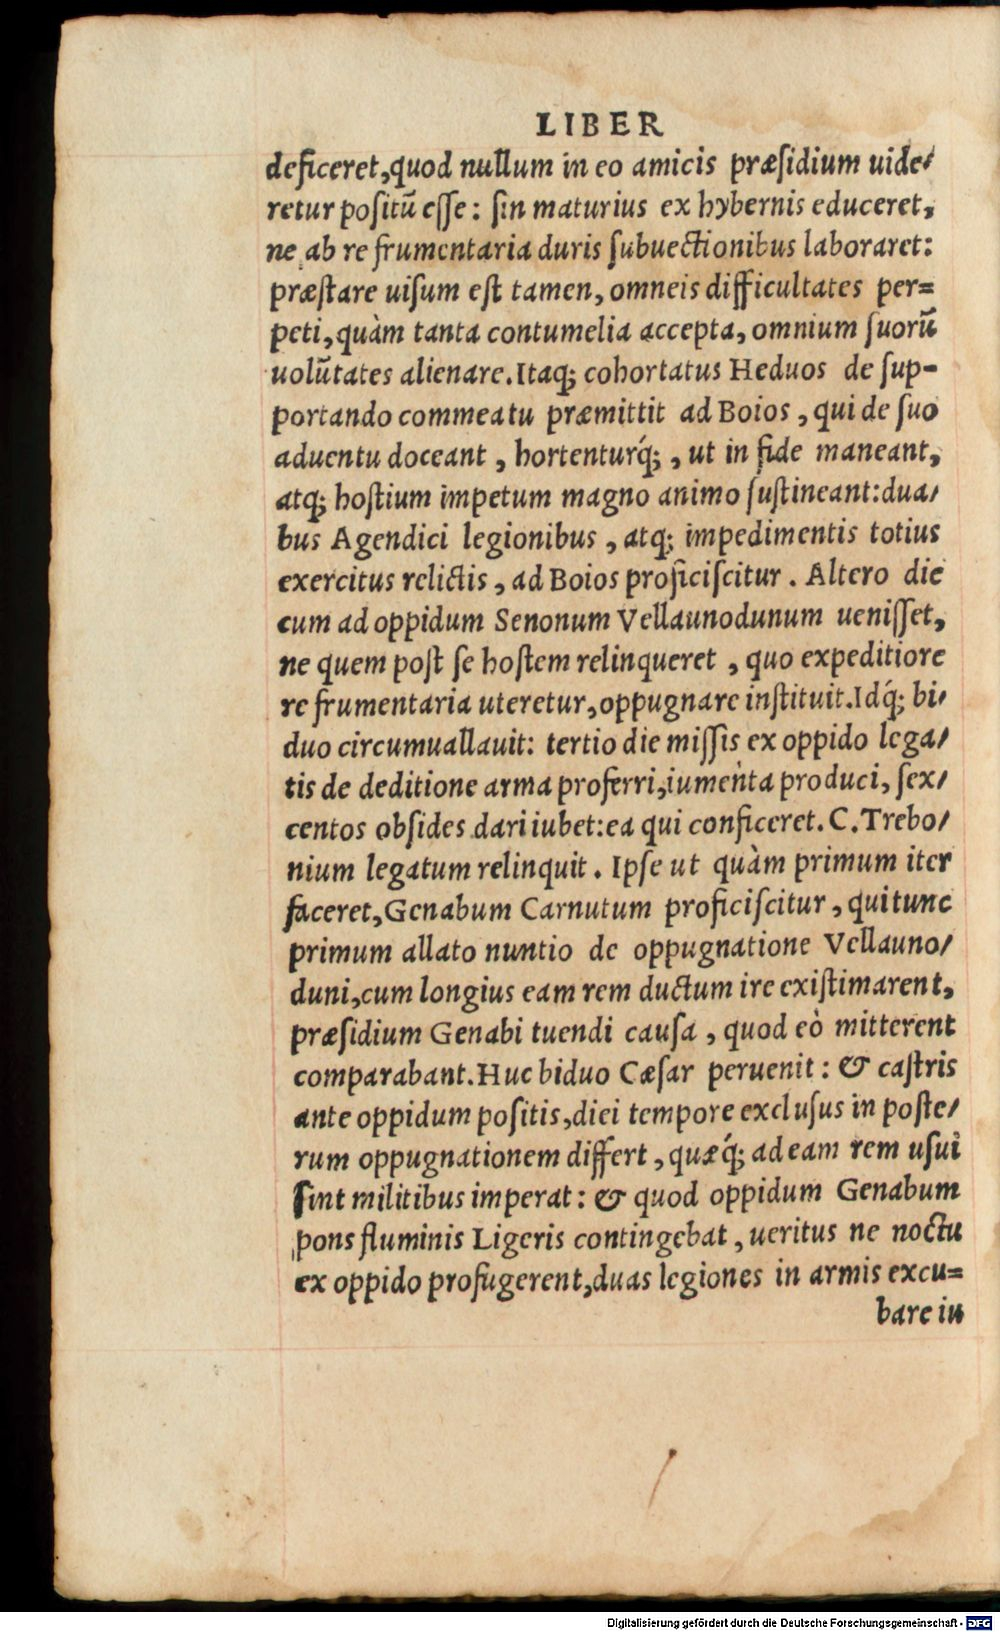 LIBER
deficeret, quod nullum in eo amicis præsidium uide/
retur positũ esse: sin maturius ex hybernis educeret,
ne ab re frumentaria duris subuectionibus laboraret:
præstare uisum est tamen, omneis difficultates per=
peti, quàm tanta contumelia accepta, omnium suorũ
uolũtates alienare. Itaq; cohortatus Heduos de sup-
portando commeatu præmittit ad Boios, qui de suo
aduentu doceant, hortenturq́;, ut in fide maneant,
atq; hostium impetum magno animo sustineant: dua/
bus Agendici legionibus, atq; impedimentis totius
exercitus relictis, ad Boios proficiscitur. Altero die
cum ad oppidum Senonum Vellaunodunum uenisset,
ne quem post se hostem relinqueret, quo expeditiore
re frumentaria uteretur, oppugnare instituit. Idq́; bi/
duo circumuallauit: tertio die missis ex oppido lega/
tis de deditione arma proferri, iumenta produci, sex/
centos obsides dari iubet: ea qui conficeret. C. Trebo/
nium legatum relinquit. Ipse ut quàm primum iter
faceret, Genabum Carnutum proficiscitur, qui tunc
primum allato nuntio de oppugnatione Vellauno/
duni, cum longius eam rem ductum ire existimarent,
præsidium Genabi tuendi causa, quod eò mitterent
comparabant. Huc biduo Cæsar peruenit: & castris
ante oppidum positis, diei tempore exclusus in poste/
rum oppugnationem differt, quæq́; ad eam rem usui
sint militibus imperat: & quod oppidum Genabum
pons fluminis Ligeris contingebat, ueritus ne noctu
ex oppido profugerent, duas legiones in armis excu=
bare iu
Digitalisierung gefördert durch die Deutsche Forschungsgemeinschaft - DFG